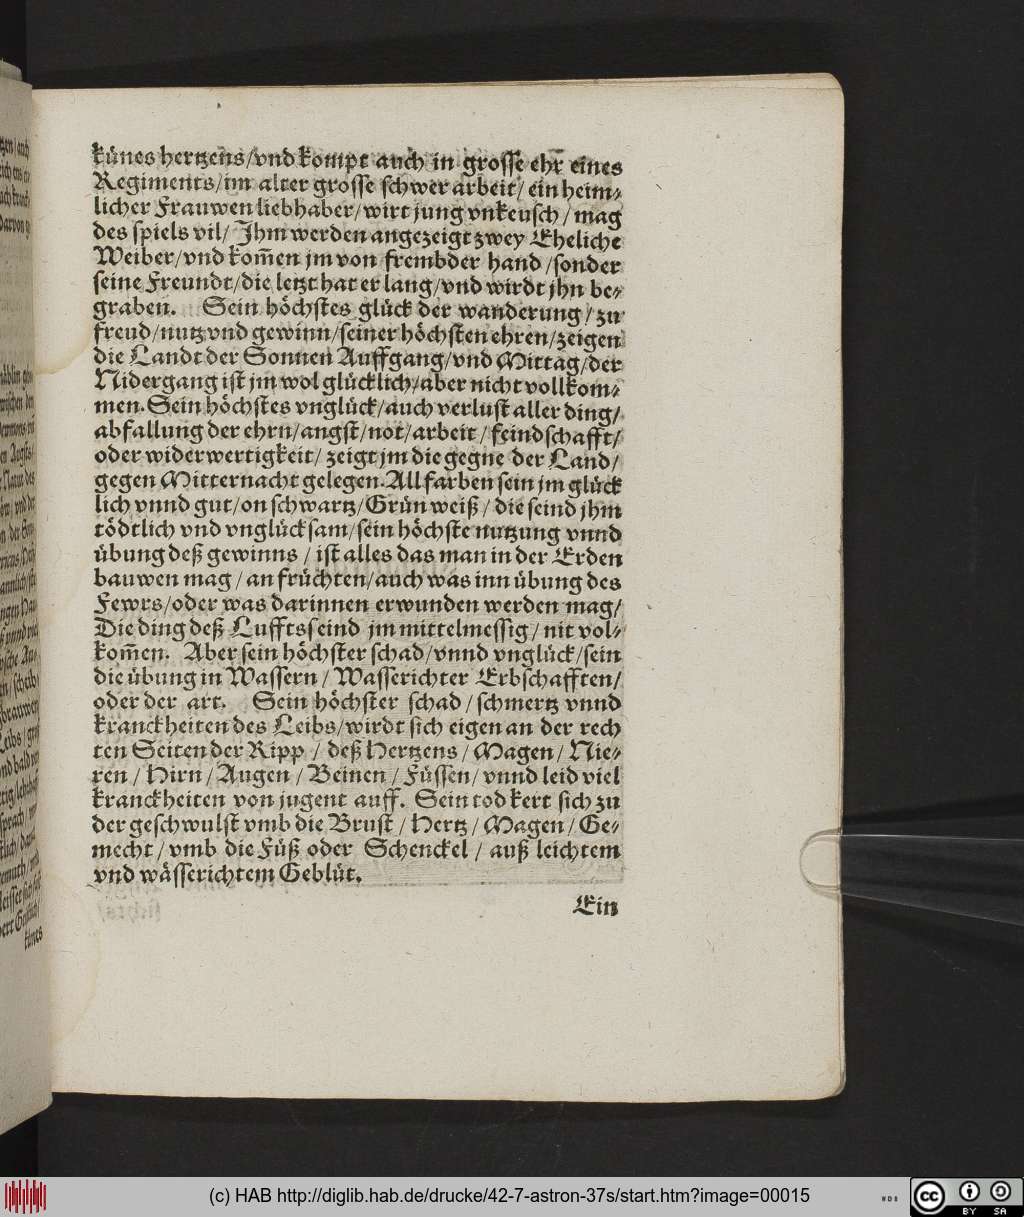 künes hertzens/vnd kompt auch in grosse ehr̄ eines
Regiments/im alter grosse schwer arbeit/ ein heim⸗
licher Frauwen liebhaber/wirt jung vnkeusch/ mag
des spiels vil/ Ihm werden angezeigt zwey Eheliche
Weiber/vnd kom̄en jm von frembder hand /sonder
seine Freundt/die letzt hat er lang/vnd wirdt jhn be⸗
graben. Sein höchstes glück der wanderung/ zu
freud/nutz vnd gewinn/seiner höchsten ehren/zeigen
die Landt der Sonnen Auffgang/vnd Mittag/der
Nidergang ist jm wol glücklich/aber nicht vollkom⸗
men. Sein höchstes vnglück/auch verlust aller ding/
abfallung der ehrn/angst/not/arbeit/feindschafft/
oder widerwertigkeit/ zeigt jm die gegne der Land/
gegen Mitternacht gelegen. All farben sein jm glück
lich vnnd gut/on schwartz/Grün weiß/ die seind jhm
tödtlich vnd vnglücksam/sein höchste nutzung vnnd
übung deß gewinns / ist alles das man in der Erden
bauwen mag/ an früchten/auch was inn übung des
Fewrs/oder was darinnen erwunden werden mag/
Die ding deß Luffts seind jm mittelmessig/ nit vol⸗
kom̄en. Aber sein höchster schad/vnnd vnglück/sein
die übung in Wassern/ Wasserichter Erbschafften/
oder der art. Sein höchster schad/ schmertz vnnd
kranckheiten des Leibs/wirdt sich eigen an der rech
ten Seiten der Ripp / deß Hertzens / Magen/ Nie⸗
ren / Hirn / Augen / Beinen / Füssen/ vnnd leid viel
kranckheiten von jugent auff. Sein tod kert sich zu
der geschwulst vmb die Brust / Hertz/ Magen/ Ge⸗
mecht/ vmb die Füß oder Schenckel / auß leichtem
vnd wässerichtem Geblüt.
Ein
künes
(c) HAB http://diglib.hab.de/drucke/42-7-astron-37s/start.htm?image=00015
cc
BY SA